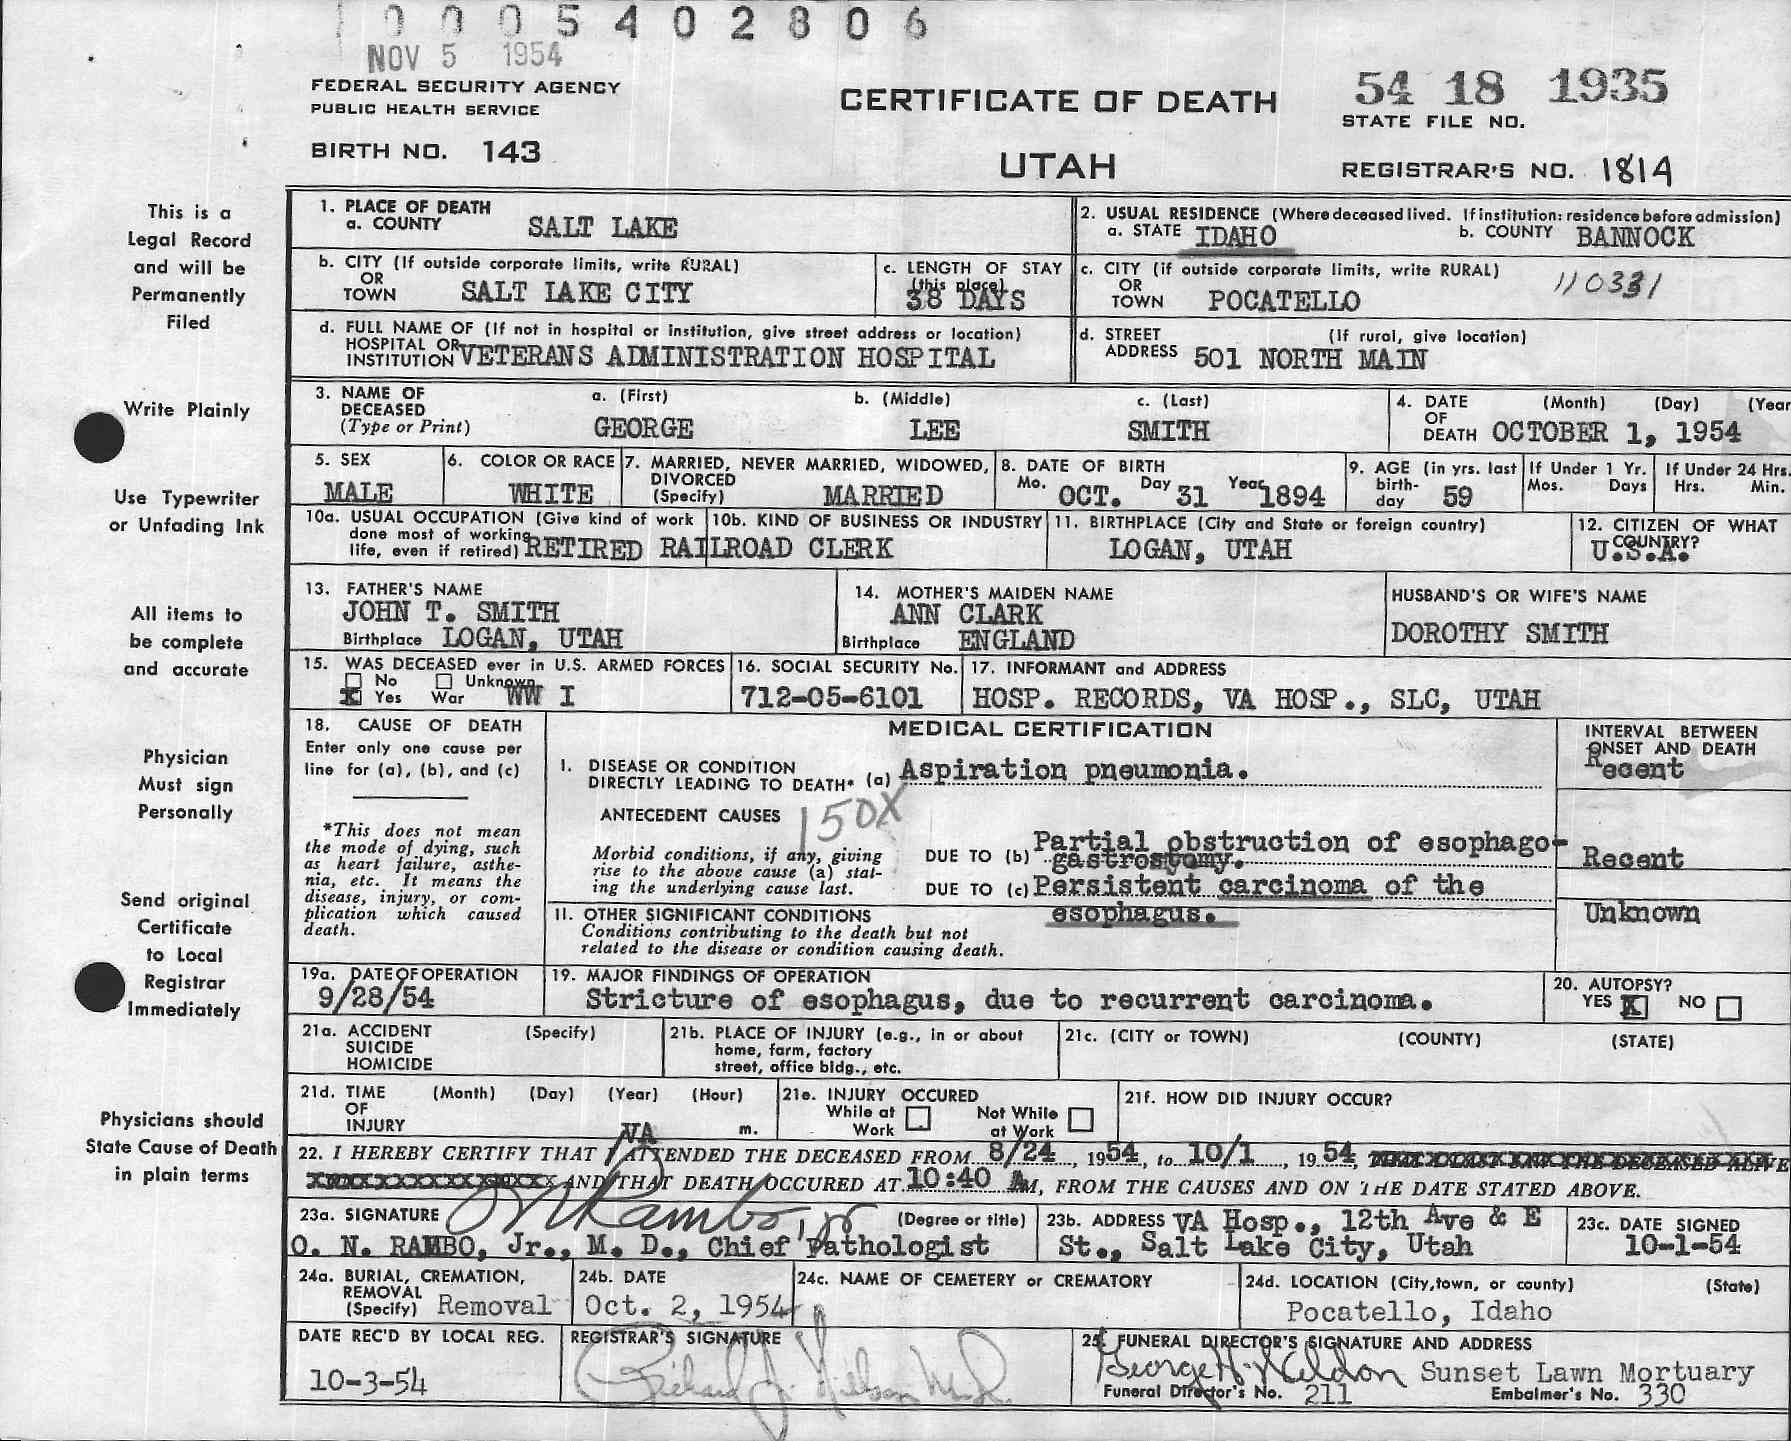 0005402806
NOV 5 1954
FEDERAL SECURITY AGENCY
PUBLIC HEALTH SERVICE
BIRTH NO. 143
CERTIFICATE OF DEATH
UTAH
54 18 1935
STATE FILE NO.
REGISTRAR'S NO. 1814
This is a
Legal Record
and will be
Permanently
Filed
Write Plainly
Use Typewriter
or Unfading Ink
All items to
be complete
and accurate
Physician
Must sign
Personally
Send original
Certificate
to Local
Registrar
Immediately
Physicians should
State Cause of Death
in plain terms
1. PLACE OF DEATH
a. COUNTY SALT LAKE
2. USUAL RESIDENCE (Where deceased lived. If institution: residence before admission)
a. STATE IDAHO b. COUNTY BANNOCK
b. CITY (If outside corporate limits, write RURAL)
OR
TOWN SALT LAKE CITY
c. LENGTH OF STAY
(this place)
38 DAYS
c. CITY (if outside corporate limits, write RURAL)
OR
TOWN POCATELLO
110331
d. FULL NAME OF (If not in hospital or institution, give street address or location)
HOSPITAL OR
INSTITUTION VETERANS ADMINISTRATION HOSPITAL
d. STREET (If rural, give location)
ADDRESS 501 NORTH MAIN
3. NAME OF a. (First) b. (Middle) c. (Last)
DECEASED
(Type or Print) GEORGE LEE SMITH
4. DATE (Month) (Day) (Year
OF
DEATH OCTOBER 1, 1954
5. SEX
MALE
6. COLOR OR RACE
WHITE
7. MARRIED, NEVER MARRIED, WIDOWED,
DIVORCED
(Specify) MARRIED
8. DATE OF BIRTH
Mo. OCT. Day 31 Year 1894
9. AGE (in yrs. last
birth-
day 59
If Under 1 Yr.
Mos. Days
If Under 24 Hrs.
Hrs. Min.
10a. USUAL OCCUPATION (Give kind of work
done most of working
life, even if retired) RETIRED RAILROAD CLERK
10b. KIND OF BUSINESS OR INDUSTRY
11. BIRTHPLACE (City and State or foreign country)
LOGAN, UTAH
12. CITIZEN OF WHAT
COUNTRY?
U.S.A.
13. FATHER'S NAME
JOHN T. SMITH
Birthplace LOGAN, UTAH
14. MOTHER'S MAIDEN NAME
ANN CLARK
Birthplace ENGLAND
HUSBAND'S OR WIFE'S NAME
DOROTHY SMITH
15. WAS DECEASED ever in U.S. ARMED FORCES
No Unknown
X Yes War WW I
16. SOCIAL SECURITY No.
712-05-6101
17. INFORMANT and ADDRESS
HOSP. RECORDS, VA HOSP., SLC, UTAH
18. CAUSE OF DEATH
Enter only one cause per
line for (a), (b), and (c)
*This does not mean
the mode of dying, such
as heart failure, asthe-
nia, etc. It means the
disease, injury, or com-
plication which caused
death.
MEDICAL CERTIFICATION
I. DISEASE OR CONDITION
DIRECTLY LEADING TO DEATH* (a) Aspiration pneumonia.
ANTECEDENT CAUSES 150X
Morbid conditions, if any, giving
rise to the above cause (a) stat-
ing the underlying cause last.
DUE TO (b) Partial obstruction of esophago-
gastrostomy.
DUE TO (c) Persistent carcinoma of the
esophagus.
II. OTHER SIGNIFICANT CONDITIONS
Conditions contributing to the death but not
related to the disease or condition causing death.
INTERVAL BETWEEN
ONSET AND DEATH
Recent
Recent
Unknown
19a. DATE OF OPERATION
9/28/54
19. MAJOR FINDINGS OF OPERATION
Stricture of esophagus, due to recurrent carcinoma.
20. AUTOPSY?
YES X NO
21a. ACCIDENT (Specify)
SUICIDE
HOMICIDE
21b. PLACE OF INJURY (e.g., in or about
home, farm, factory
street, office bldg., etc.
21c. (CITY or TOWN) (COUNTY) (STATE)
21d. TIME (Month) (Day) (Year) (Hour)
OF
INJURY m.
21e. INJURY OCCURED
While at Not While
Work at Work
21f. HOW DID INJURY OCCUR?
VA
22. I HEREBY CERTIFY THAT I ATTENDED THE DECEASED FROM 8/24, 1954, to 10/1, 1954, THAT I LAST SAW THE DECEASED ALIVE
AND THAT DEATH OCCURED AT 10:40 AM, FROM THE CAUSES AND ON THE DATE STATED ABOVE.
23a. SIGNATURE O N Rambo, Jr (Degree or title)
O. N. RAMBO, Jr., M. D., Chief Pathologist
23b. ADDRESS VA Hosp., 12th Ave & E
St., Salt Lake City, Utah
23c. DATE SIGNED
10-1-54
24a. BURIAL, CREMATION,
REMOVAL
(Specify) Removal
24b. DATE
Oct. 2, 1954
24c. NAME OF CEMETERY or CREMATORY
24d. LOCATION (City, town, or county) (State)
Pocatello, Idaho
DATE REC'D BY LOCAL REG.
10-3-54
REGISTRAR'S SIGNATURE
Richard J.
25. FUNERAL DIRECTOR'S SIGNATURE AND ADDRESS
George H. Weldon Sunset Lawn Mortuary
Funeral Director's No. 211 Embalmer's No. 330